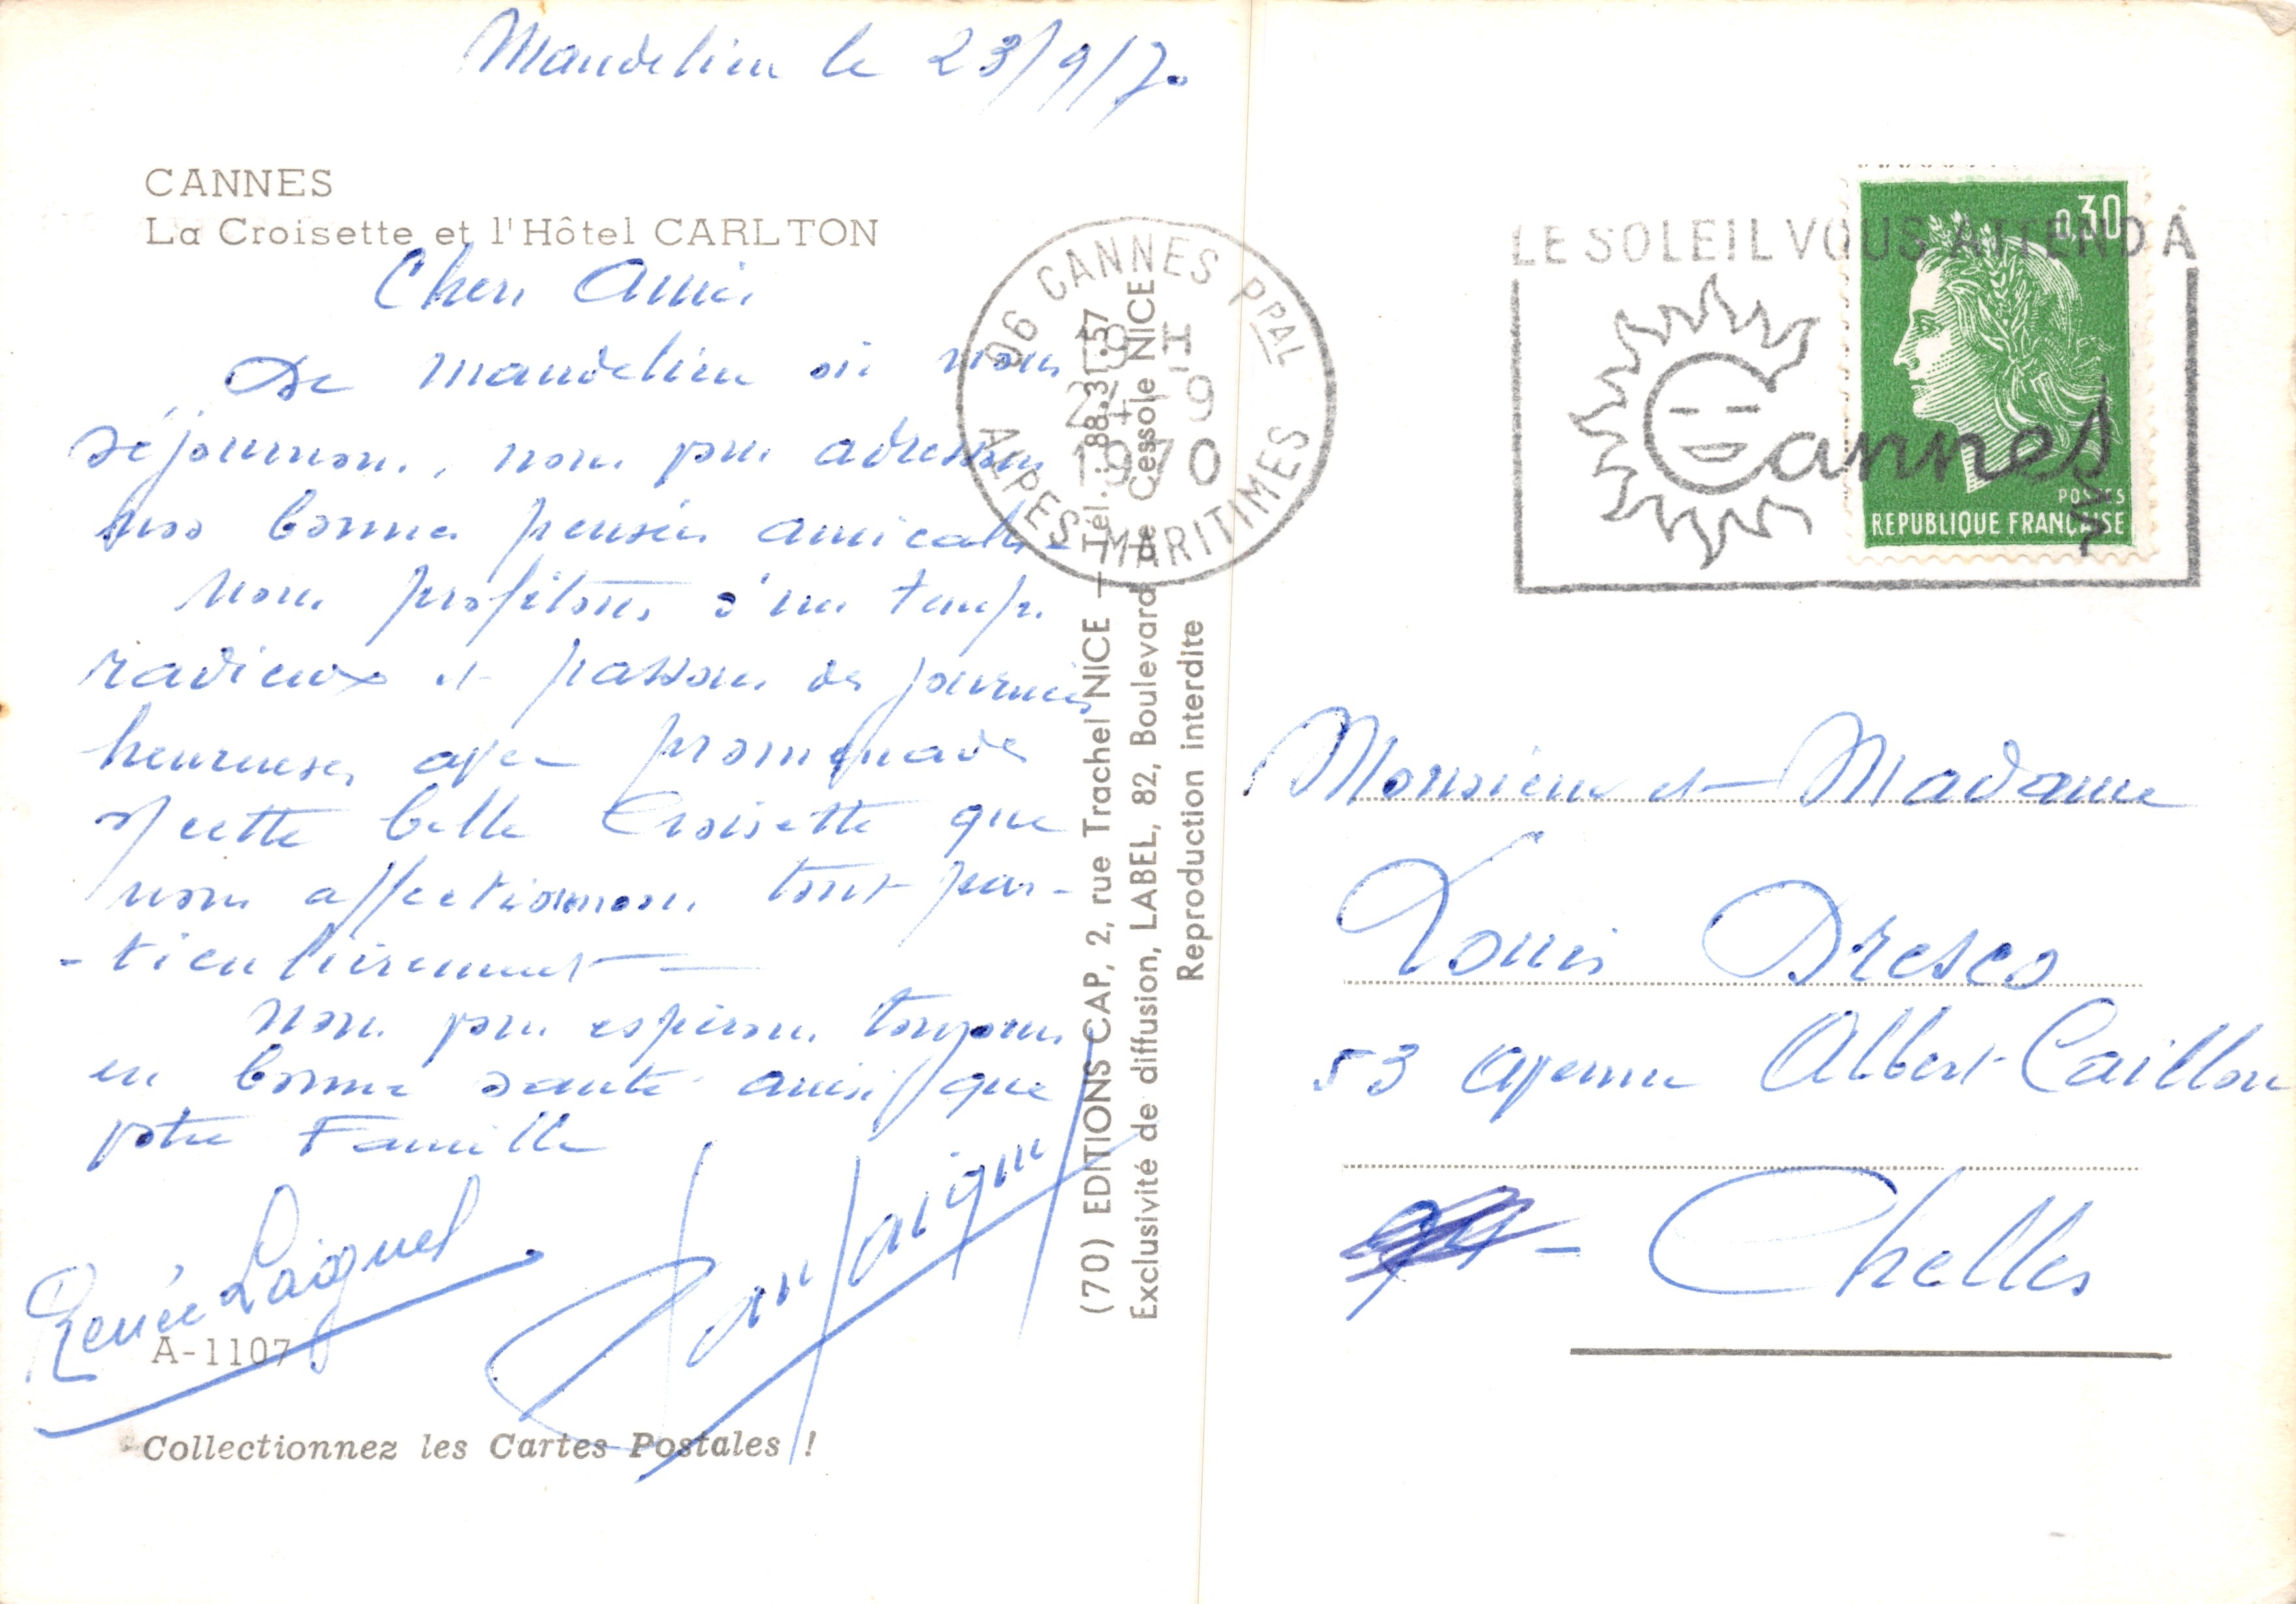 Mandelieu le 23/9/70
CANNES
La Croisette et l'Hôtel CARLTON
Chers Amis
De Mandelieu où nous
séjournons, nous vous adressons
nos bonnes pensées amicales -
Nous profitons d'un temps
radieux et passons des journées
heureuses avec promenade
s/ cette belle Croisette que
nous affectionnons tout par-
-ticulièrement
Nous vous espérons toujours
en bonne santé ainsi que
votre Famille
Renée Laiguel
A-1107
Collectionnez les Cartes Postales !
(70) EDITIONS CAP, 2, rue Trachel NICE — Tél. : 88.31.57
Exclusivité de diffusion, LABEL, 82, Boulevard de Cessole NICE
Reproduction interdite
06 CANNES PPAL
18 H
24-9
1970
ALPES MARITIMES
LE SOLEIL VOUS ATTEND À
Cannes
0,30
POSTES
REPUBLIQUE FRANÇAISE
Monsieur et Madame
Louis Dresco
53 avenue Albert Caillou
- Chelles